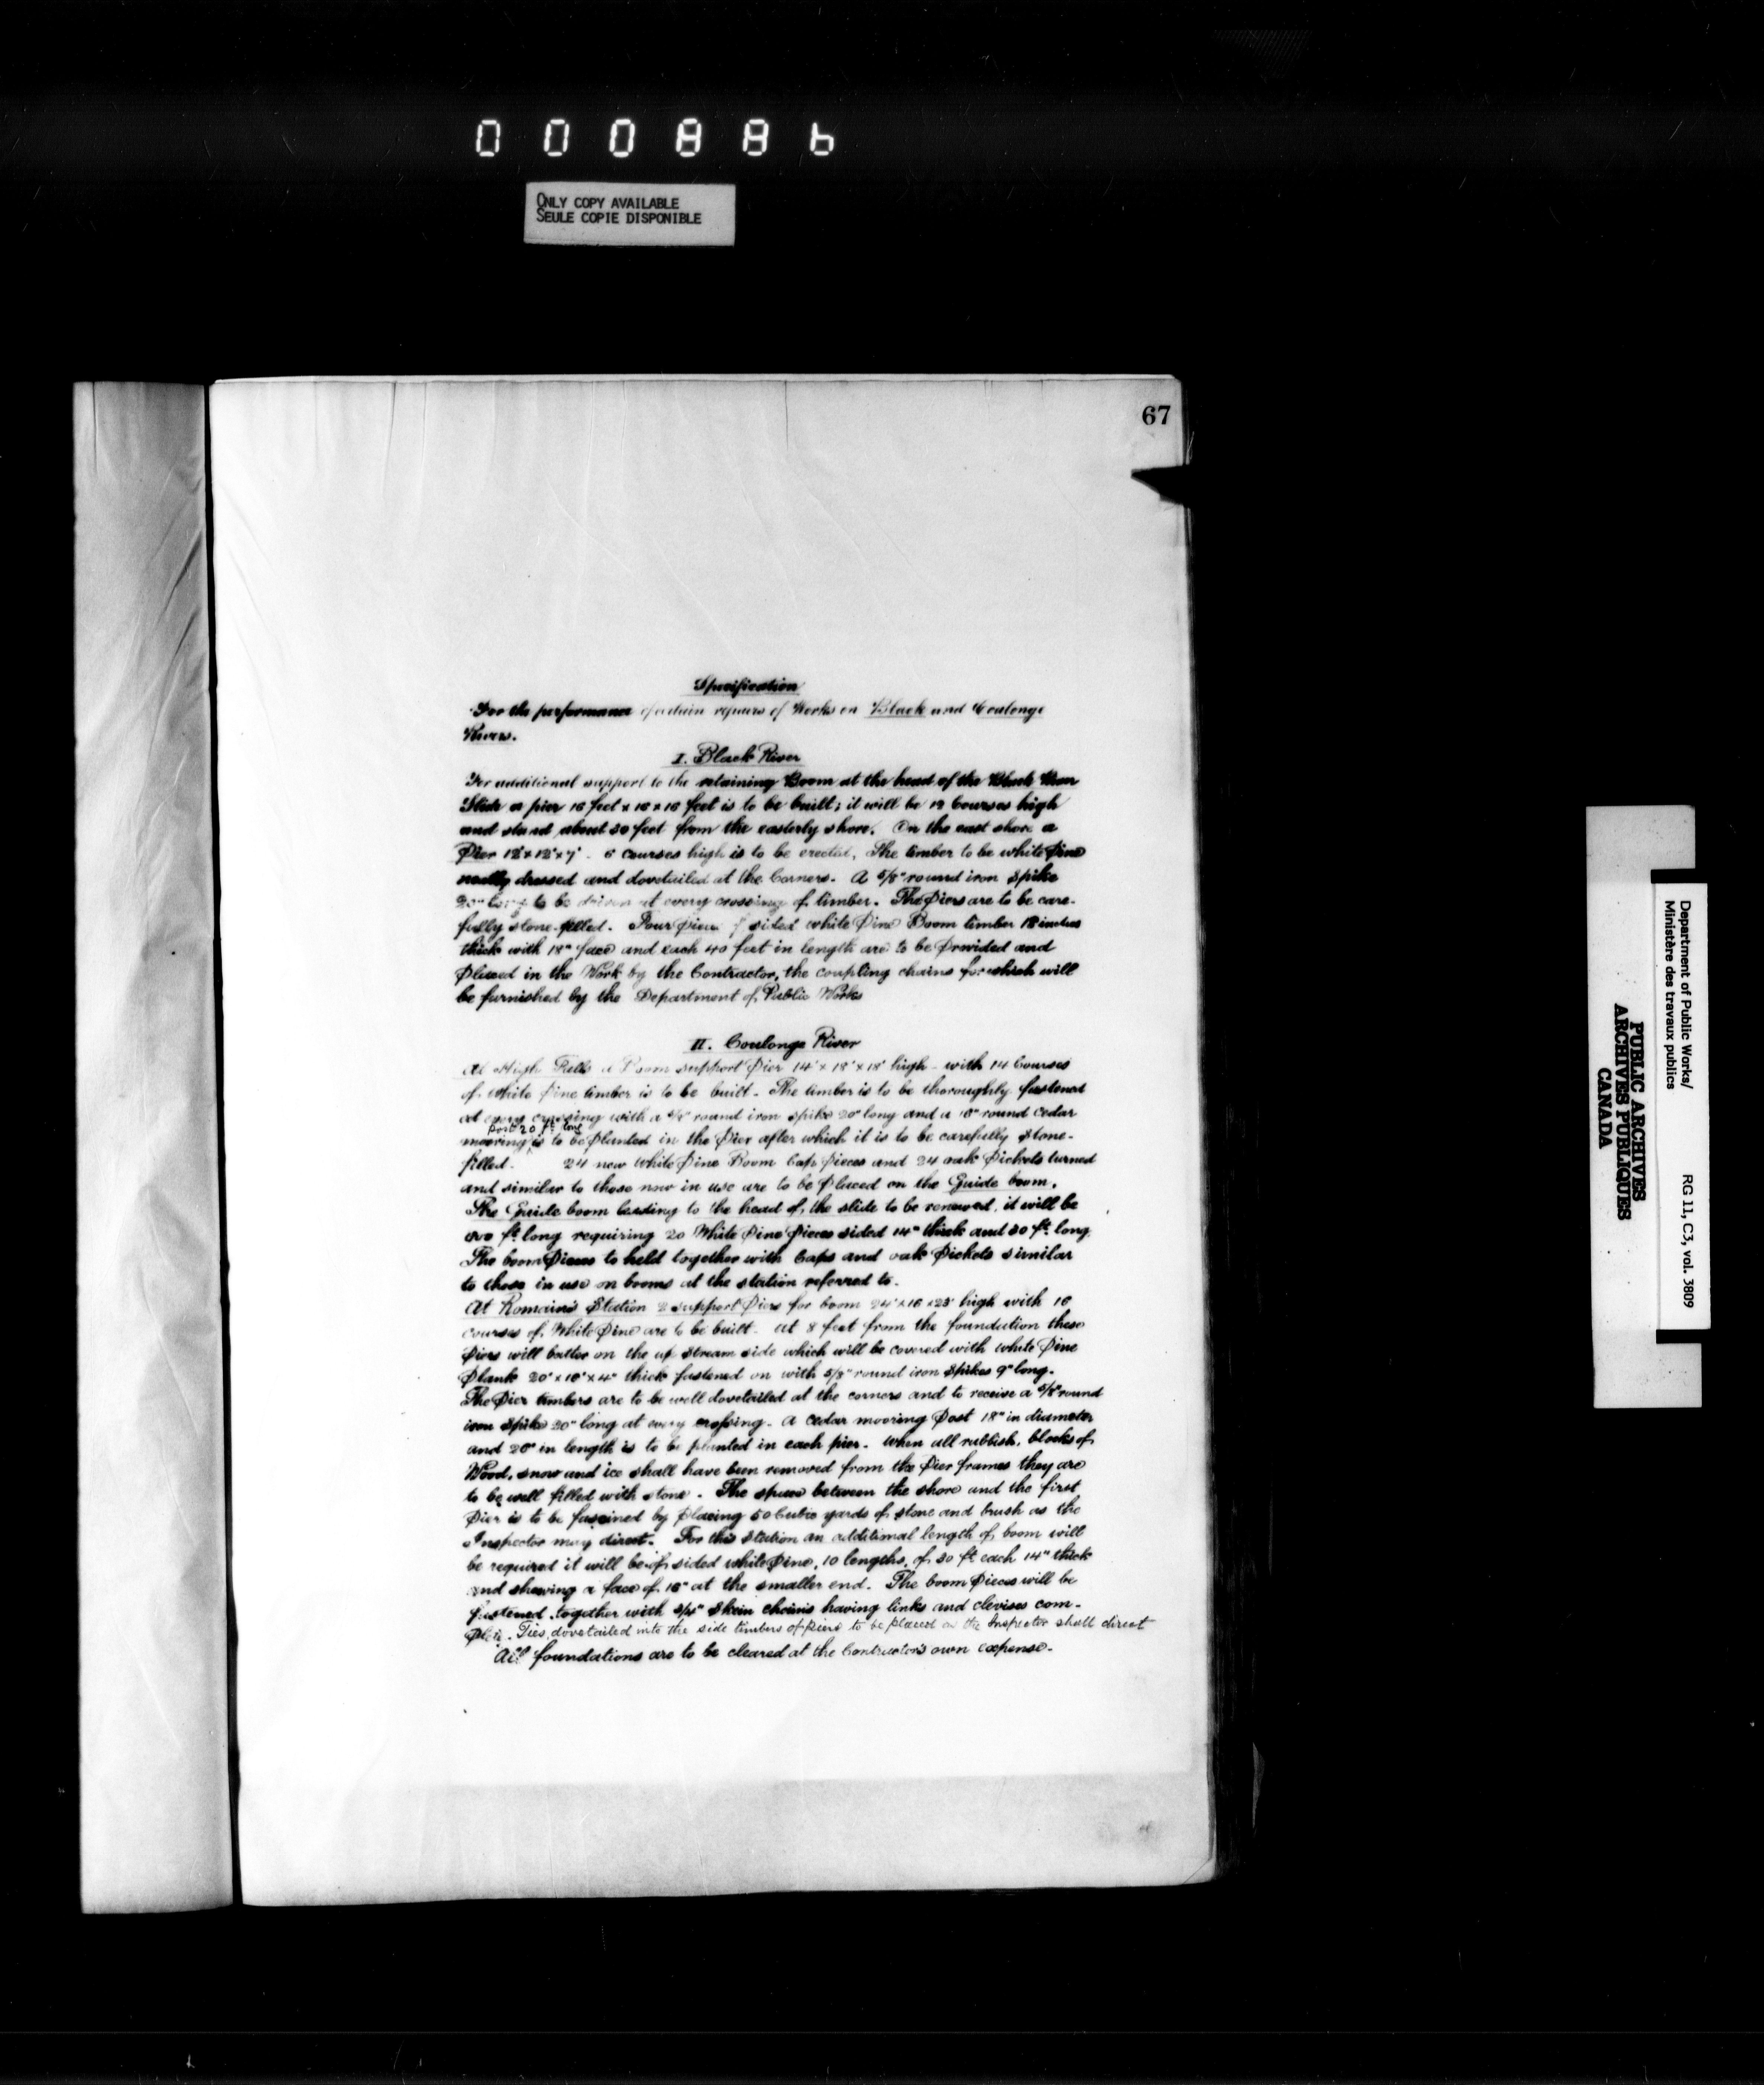 000886
ONLY COPY AVAILABLE
SEULE COPIE DISPONIBLE
67
Specification
For the performance of certain repairs of Works on Black and Coulonge
Rivers.
I. Black River
For additional support to the retaining Boom at the head of the Black River
Slide a pier 16 feet x 16 x 16 feet is to be built; it will be 12 Courses high
and stand about 30 feet from the easterly shore. On the east shore a
Pier 12' x 12' x 7' - 6 courses high is to be erected, The timber to be white Pine
neatly dressed and dovetailed at the Corners. A 5/8" round iron Spike
20" long to be driven at every crossing of timber. The Piers are to be care-
fully stone-filled. Four Pieces of sided white Pine Boom timber 12 inches
thick with 18" face and each 40 feet in length are to be Provided and
Placed in the Work by the Contractor, the coupling chains for which will
be furnished by the Department of Public Works
II. Coulonge River
At High Falls a Boom support Pier 14' x 18' x 18' high - with 14 Courses
of White Pine timber is to be built - The timber is to be thoroughly fastened
at every crossing with a 5/8" round iron spike 20" long and a 18" round cedar
Post 20 ft long
mooring is to be Planted in the Pier after which it is to be carefully Stone-
filled. 24 new White Pine Boom Cap Pieces and 24 oak Pickets turned
and similar to those now in use are to be Placed on the Guide boom.
The Guide boom leading to the head of the slide to be renewed, it will be
ft. long requiring 20 White Pine Pieces sided 14" thick and 30 ft. long.
The boom Pieces to held together with Caps and oak Pickets similar
to those in use on booms at the station referred to.
At Romain's Station 2 support Piers for boom 24' x 16 x 23' high with 16
courses of White Pine are to be built. at 8 feet from the foundation these
Piers will batter on the up Stream side which will be covered with white Pine
Plank 20' x 10" x 4" thick fastened on with 5/8" round iron Spikes 9" long.
The Pier timbers are to be well dovetailed at the corners and to receive a 5/8" round
iron Spike 20" long at every crossing. A cedar mooring Post 18" in diameter
and 20' in length is to be planted in each pier. When all rubbish, blocks of
Wood, snow and ice shall have been removed from the Pier frames they are
to be well filled with stone. The space between the shore and the first
Pier is to be fascined by Placing 50 Cubic yards of stone and brush as the
Inspector may direct. For this Station an additional length of boom will
be required it will be of sided white Pine, 10 lengths, of 30 ft each 14" thick
and shewing a face of 16" at the smaller end. The boom Pieces will be
fastened together with 3/4" Skein chains having links and clevises com-
plete. Ties, dovetailed into the side timbers of Piers to be Placed as the Inspector shall direct
All foundations are to be cleared at the Contractor's own expense.
Department of Public Works/
Ministère des travaux publics
RG 11, C3, vol. 3809
PUBLIC ARCHIVES
ARCHIVES PUBLIQUES
CANADA